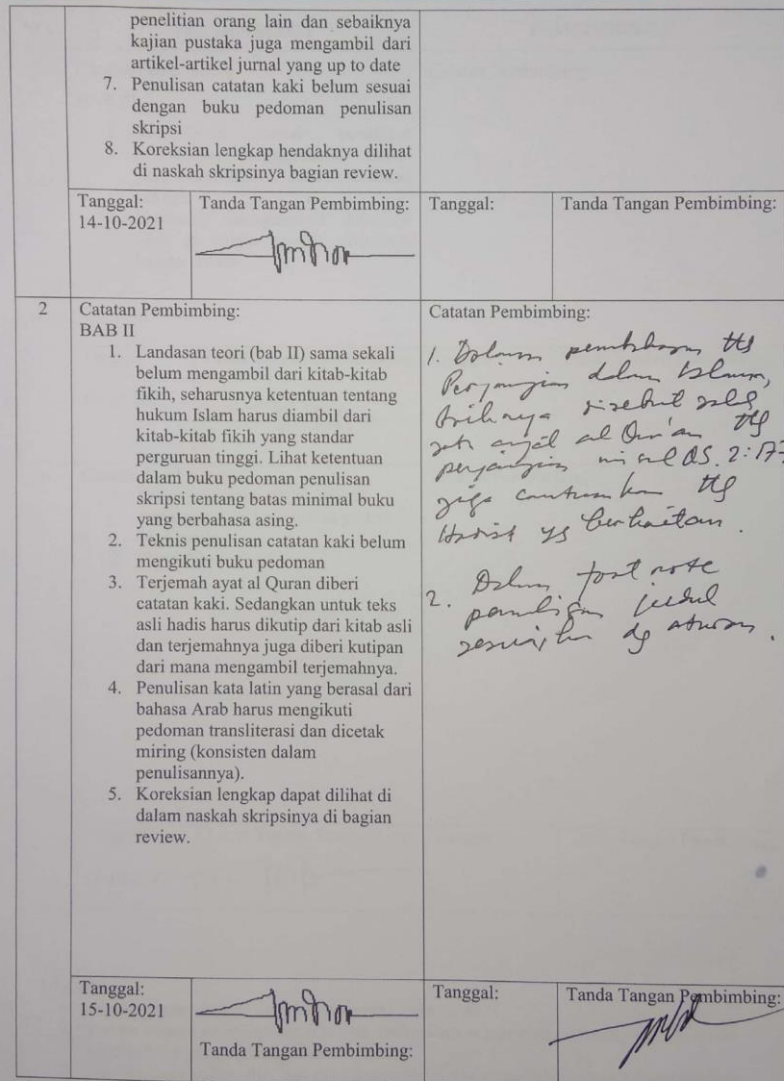 penelitian orang lain dan sebaiknya
kajian pustaka juga mengambil dari
artikel-artikel jurnal yang up to date
7. Penulisan catatan kaki belum sesuai
dengan buku pedoman penulisan
skripsi
8. Koreksian lengkap hendaknya dilihat
di naskah skripsinya bagian review.
Tanggal:
14-10-2021
Tanda Tangan Pembimbing:
Tanggal:
Tanda Tangan Pembimbing:
2
Catatan Pembimbing:
BAB II
1. Landasan teori (bab II) sama sekali
belum mengambil dari kitab-kitab
fikih, seharusnya ketentuan tentang
hukum Islam harus diambil dari
kitab-kitab fikih yang standar
perguruan tinggi. Lihat ketentuan
dalam buku pedoman penulisan
skripsi tentang batas minimal buku
yang berbahasa asing.
2. Teknis penulisan catatan kaki belum
mengikuti buku pedoman
3. Terjemah ayat al Quran diberi
catatan kaki. Sedangkan untuk teks
asli hadis harus dikutip dari kitab asli
dan terjemahnya juga diberi kutipan
dari mana mengambil terjemahnya.
4. Penulisan kata latin yang berasal dari
bahasa Arab harus mengikuti
pedoman transliterasi dan dicetak
miring (konsisten dalam
penulisannya).
5. Koreksian lengkap dapat dilihat di
dalam naskah skripsinya di bagian
review.
Catatan Pembimbing:
1. Dalam pembahasan ttg
Perjanjian dalam Islam,
disebut salah
satu ayat al Qur'an ttg
perjanjian misal QS. 2:177
juga cantumkan ttg
Hadist yg berkaitan.
2. Dalam foot note
penulisan judul
sesuaikan dg aturan.
Tanggal:
15-10-2021
Tanda Tangan Pembimbing:
Tanggal:
Tanda Tangan Pembimbing: